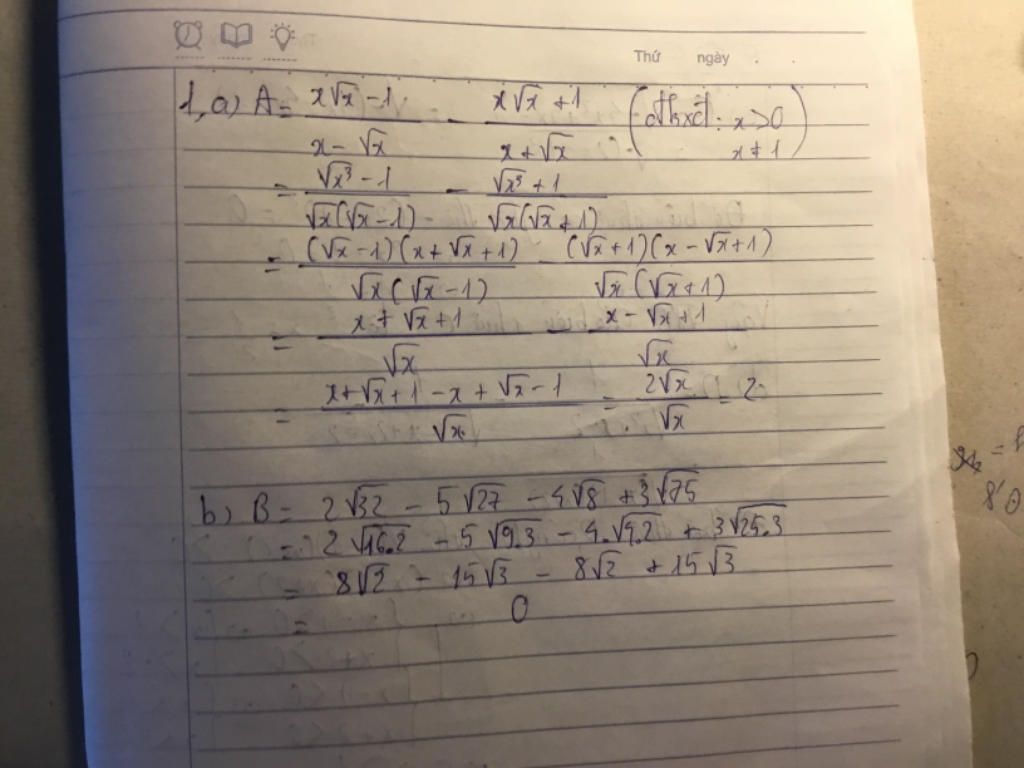 Thứ ngày
1, a) A = x√x - 1 / x - √x - x√x + 1 / x + √x (đkxđ: x > 0 x ≠ 1)
= √x³ - 1 / √x(√x - 1) - √x³ + 1 / √x(√x + 1)
= (√x - 1)(x + √x + 1) / √x(√x - 1) - (√x + 1)(x - √x + 1) / √x(√x + 1)
= x + √x + 1 / √x - x - √x + 1 / √x
= x + √x + 1 - x + √x - 1 / √x = 2√x / √x = 2
b) B = 2√32 - 5√27 - 4√8 + 3√75
= 2√16.2 - 5√9.3 - 4.√4.2 + 3√25.3
= 8√2 - 15√3 - 8√2 + 15√3
= 0